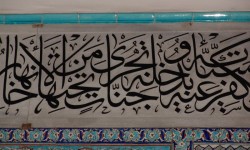 يكفر عنه سيئاته ويدخله جنات تجري من تحتها الأنهار